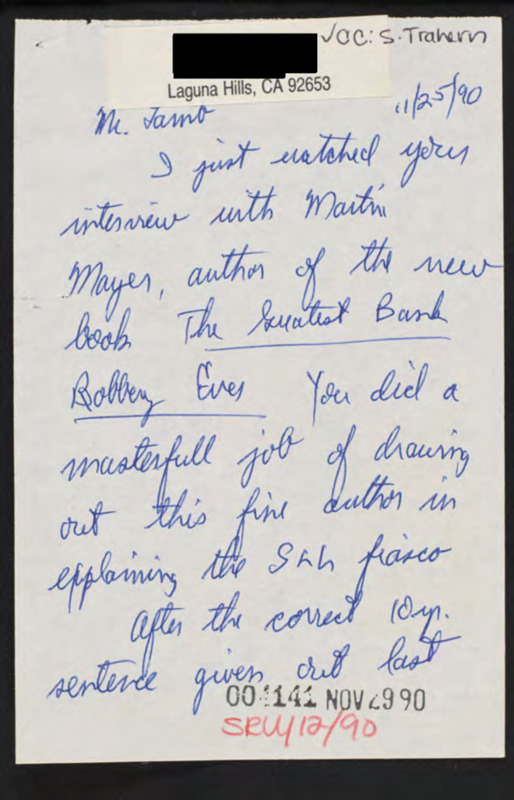 ✓CC: S. Trahern
Laguna Hills, CA 92653
11/25/90
Mr. Lamb
I just watched your
interview with Martin
Mayer, author of the new
book The Greatest Bank
Robbery Ever You did a
masterfull job of drawing
out this fine author in
explaining the S&L fiasco
After the correct 10 yr.
sentence given out last
001141 NOV 29 90